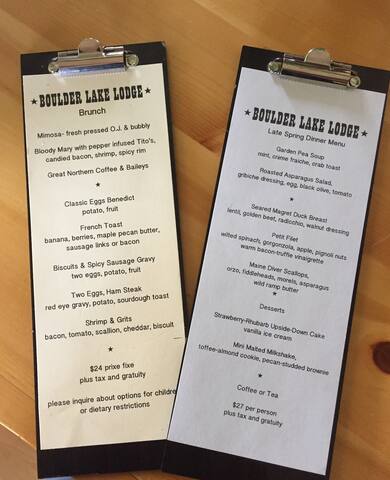 ★ BOULDER LAKE LODGE ★
Brunch
Mimosa- fresh pressed O.J. & bubbly
Bloody Mary with pepper infused Tito's,
candied bacon, shrimp, spicy rim
Great Northern Coffee & Baileys
★
Classic Eggs Benedict
potato, fruit
French Toast
banana, berries, maple pecan butter,
sausage links or bacon
Biscuits & Spicy Sausage Gravy
two eggs, potato, fruit
Two Eggs, Ham Steak
red eye gravy, potato, sourdough toast
Shrimp & Grits
bacon, tomato, scallion, cheddar, biscuit
★
$24 prixe fixe
plus tax and gratuity
please inquire about options for children
or dietary restrictions
★ BOULDER LAKE LODGE ★
Late Spring Dinner Menu
Garden Pea Soup
mint, creme fraiche, crab toast
Roasted Asparagus Salad,
gribiche dressing, egg, black olive, tomato
★
Seared Magret Duck Breast
lentil, golden beet, radicchio, walnut dressing
Petit Filet
wilted spinach, gorgonzola, apple, pignoli nuts
warm bacon-truffle vinaigrette
Maine Diver Scallops,
orzo, fiddleheads, morels, asparagus
wild ramp butter
★
Desserts
Strawberry-Rhubarb Upside-Down Cake
vanilla ice cream
Mini Malted Milkshake,
toffee-almond cookie, pecan-studded brownie
★
Coffee or Tea
$27 per person
plus tax and gratuity